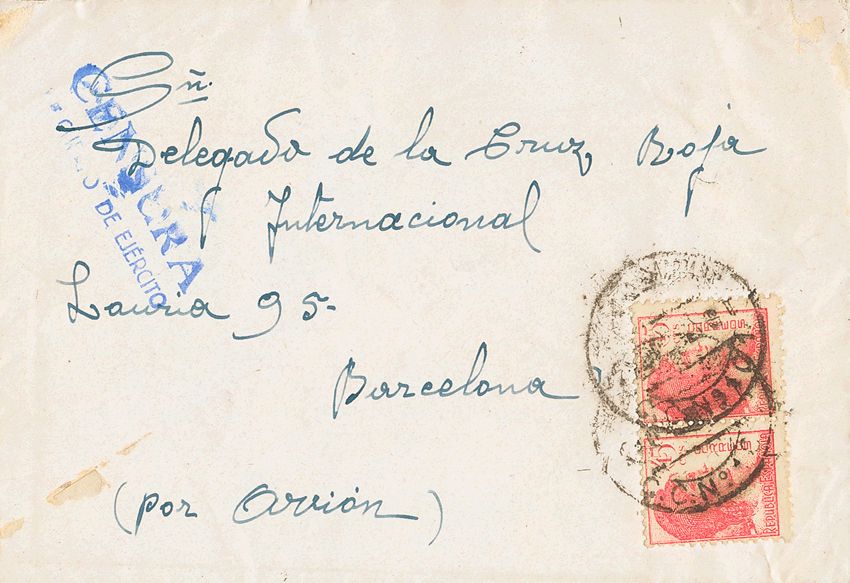 Sñ.
Delegado de la Cruz Roja
Internacional
Lauria 95-
Barcelona
(por Avión)
CENSURA
DE EJÉRCITO
45
REPUBLICA ESPAÑOLA
45
REPUBLICA ESPAÑOLA